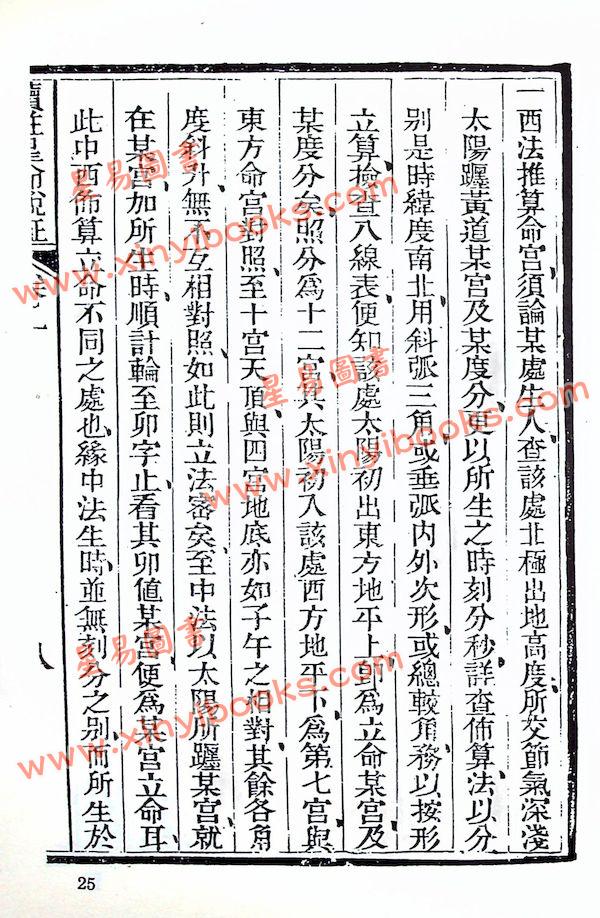 一西法推算命宫須論某處生人查該處北極出地高度所交節氣深淺
太陽躔黃道某宫及某度分更以所生之時刻分秒詳查佈算法以分
别是時緯度南北用斜弧三角或垂弧內外次形或總較角務以按形
立算撿查八線表便知該處太陽初出東方地平上即爲立命某宫及
某度分矣照分爲十二宫其太陽初入該處西方地平下爲第七宫與
東方命宫對照至十宫天頂與四宫地底亦如子午之相對其餘各角
度斜升無不互相對照如此則立法密矣至中法以太陽所躔某宫就
在某宫加所生時順計輪至卯字止看其卯值某宫便爲某宫立命耳
此中西佈算立命不同之處也緣中法生時並無刻分之别而所生於
八
25
星易圖書
www.xinyibooks.com
星易圖書
www.xinyibooks.com
星易圖書
www.xinyibooks.com
星易圖書
www.xinyibooks.com